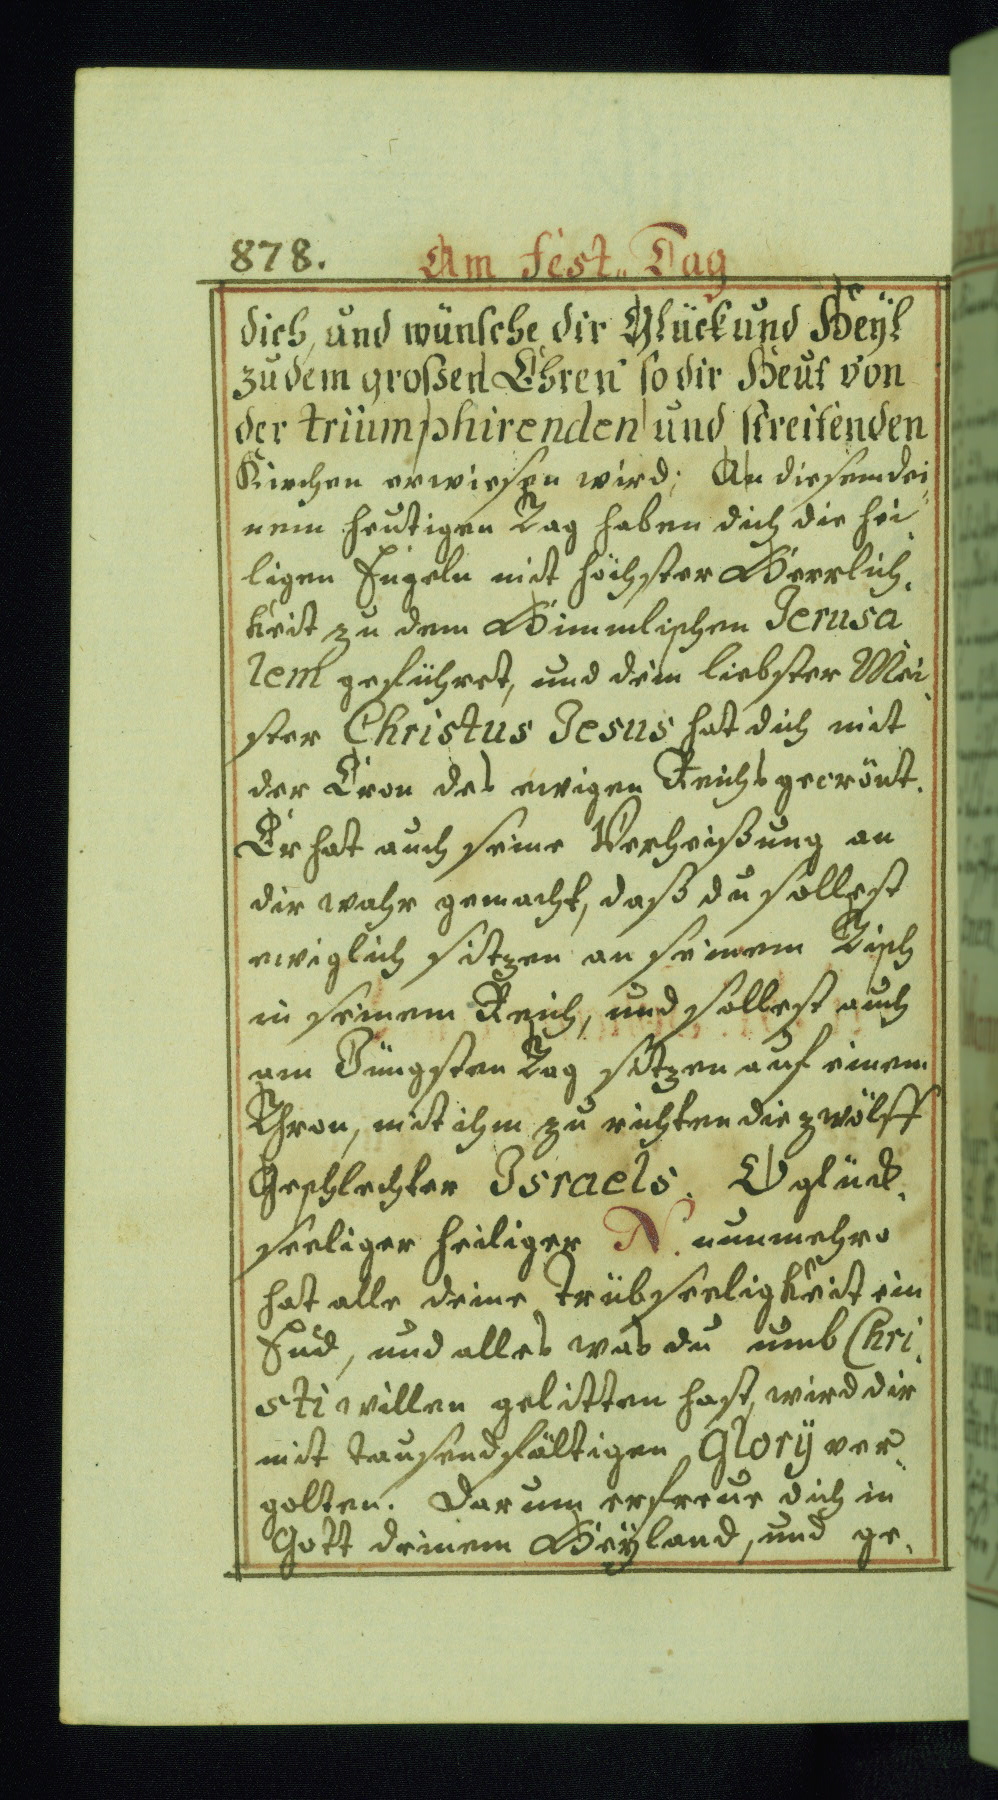 878. Am Fest„ Tag
dich, und wünsche dir Glück und Heÿl
zu dem großen Ehren so dir Heut von
der triumphirenden und streitenden
Kirchen erwiesen wird; An diesem dei„
nem heutigen Tag haben dich die hei„
ligen Engeln mit höchster Herrlich„
keit zu dem Himmlischen Jerusa
lem geführet, und dein liebster Mei„
ster Christus Jesus hat dich mit
der Cron des ewigen Reichs gecrönt.
Er hat auch seine Verheißung an
dir wahr gemacht, daß du sollest
ewiglich sitzen an seinem Tisch
in seinem Reich, und sollest auch
am Jüngsten Tag sitzen auf einem
Thron, mit ihm zu richten die zwölff
Geschlechter Israels. O glück„
seeliger heiliger N. nunmehro
hat alle deine Trübseeligkeit ein
End, und alles was du umb Chri„
sti willen gelitten hast, wird dir
mit tausendfältigen Glorÿ ver„
golten. Darum erfreue dich in
Gott deinem Heÿland, und ge„